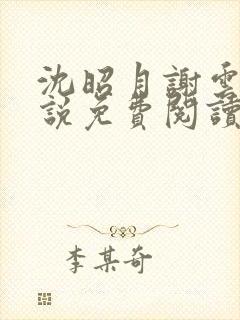 沈昭月謝雲
說免費閱讀
李某奇